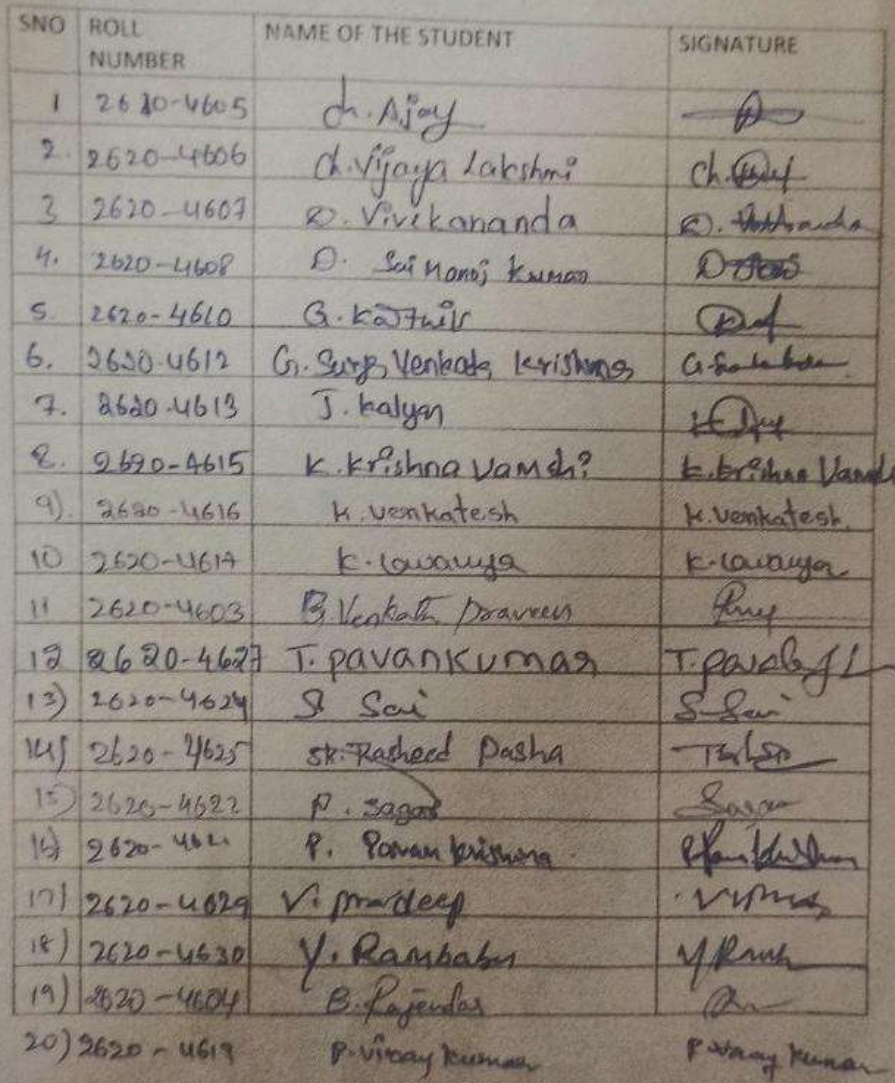 SNO ROLL NUMBER NAME OF THE STUDENT SIGNATURE
1 2620-4605 Ch. Ajay
2. 2620-4606 Ch. Vijaya Lakshmi Ch.
3 2620-4607 D. Vivekananda D.
4. 2620-4608 D. Sai Manoj Kumar
5. 2620-4610 G. Karthik
6. 2620-4612 G. Surya Venkata Krishna
7. 2620-4613 J. Kalyan
8. 2620-4615 K. Krishna Vamshi K. Krishna Vamshi
9). 2620-4616 K. Venkatesh K. Venkatesh
10 2620-4617 K. Lavanya K. Lavanya
11 2620-4603 B. Venkata Praveen
12 2620-4627 T. Pavankumar T.
13) 2620-4624 S. Sai S. Sai
14) 2620-4625 SK. Rasheed Pasha
15) 2620-4622 P. Sagar Sagar
16) 2620- P. Pavan Krishna
17) 2620-4629 V. Pradeep
18) 2620-4630 Y. Rambabu
19) 2620-4604 B. Rajendar
20) 2620-4619 P. Vinay Kumar P Vinay Kumar